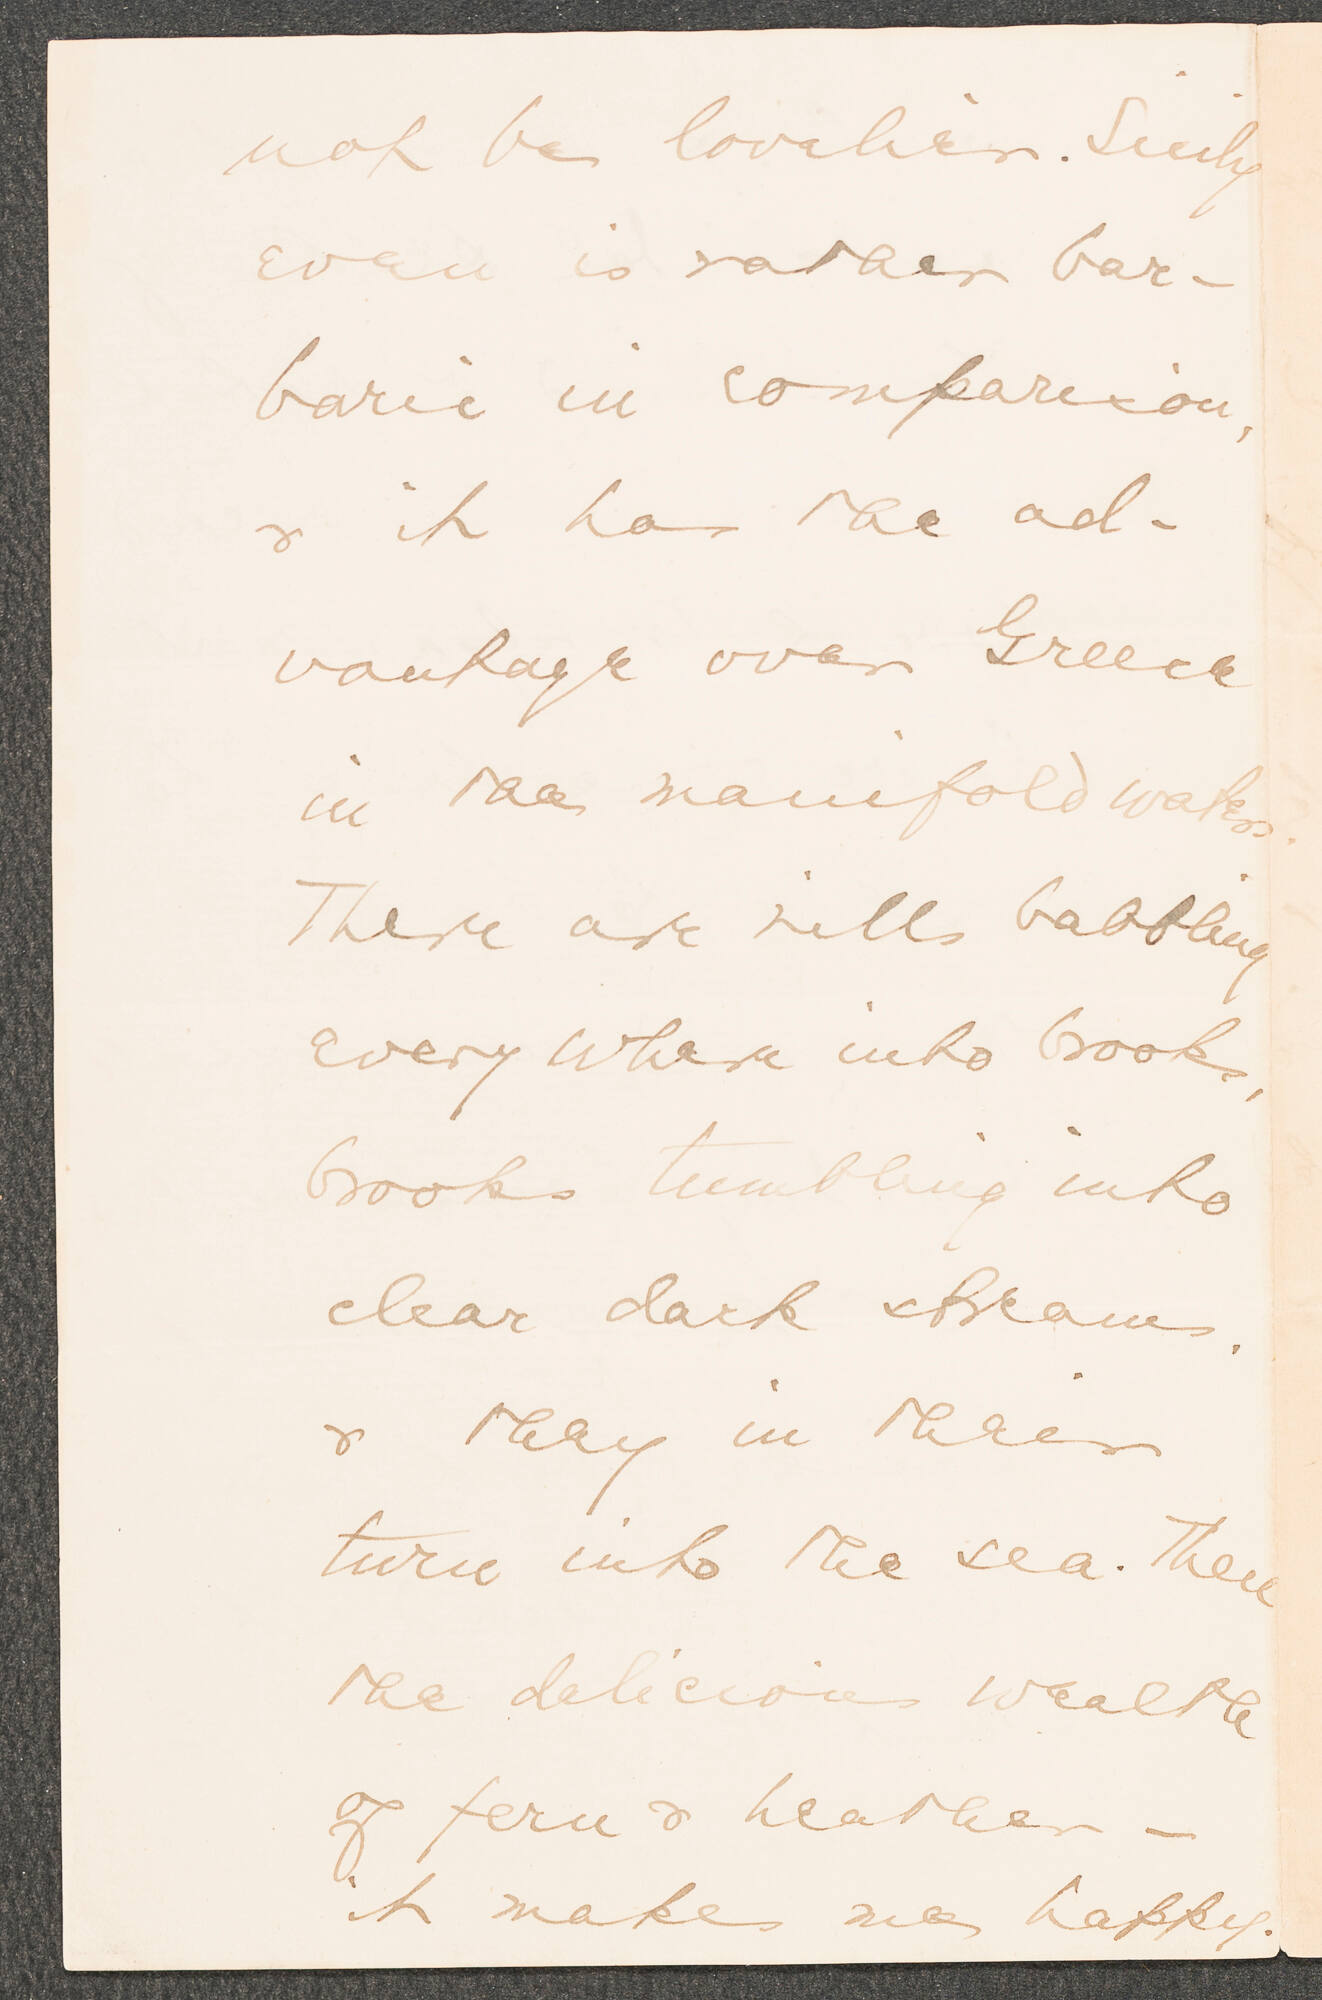 not be lovelier. Sicily
even is rather bar-
baric in comparison,
& it has the ad-
vantage over Greece
in the manifold waters.
There are rills babbling
every where into brooks,
brooks tumbling into
clear dark streams,
& they in their
turn into the sea. Then
the delicious wealth
of fern & heather –
it makes me happy.